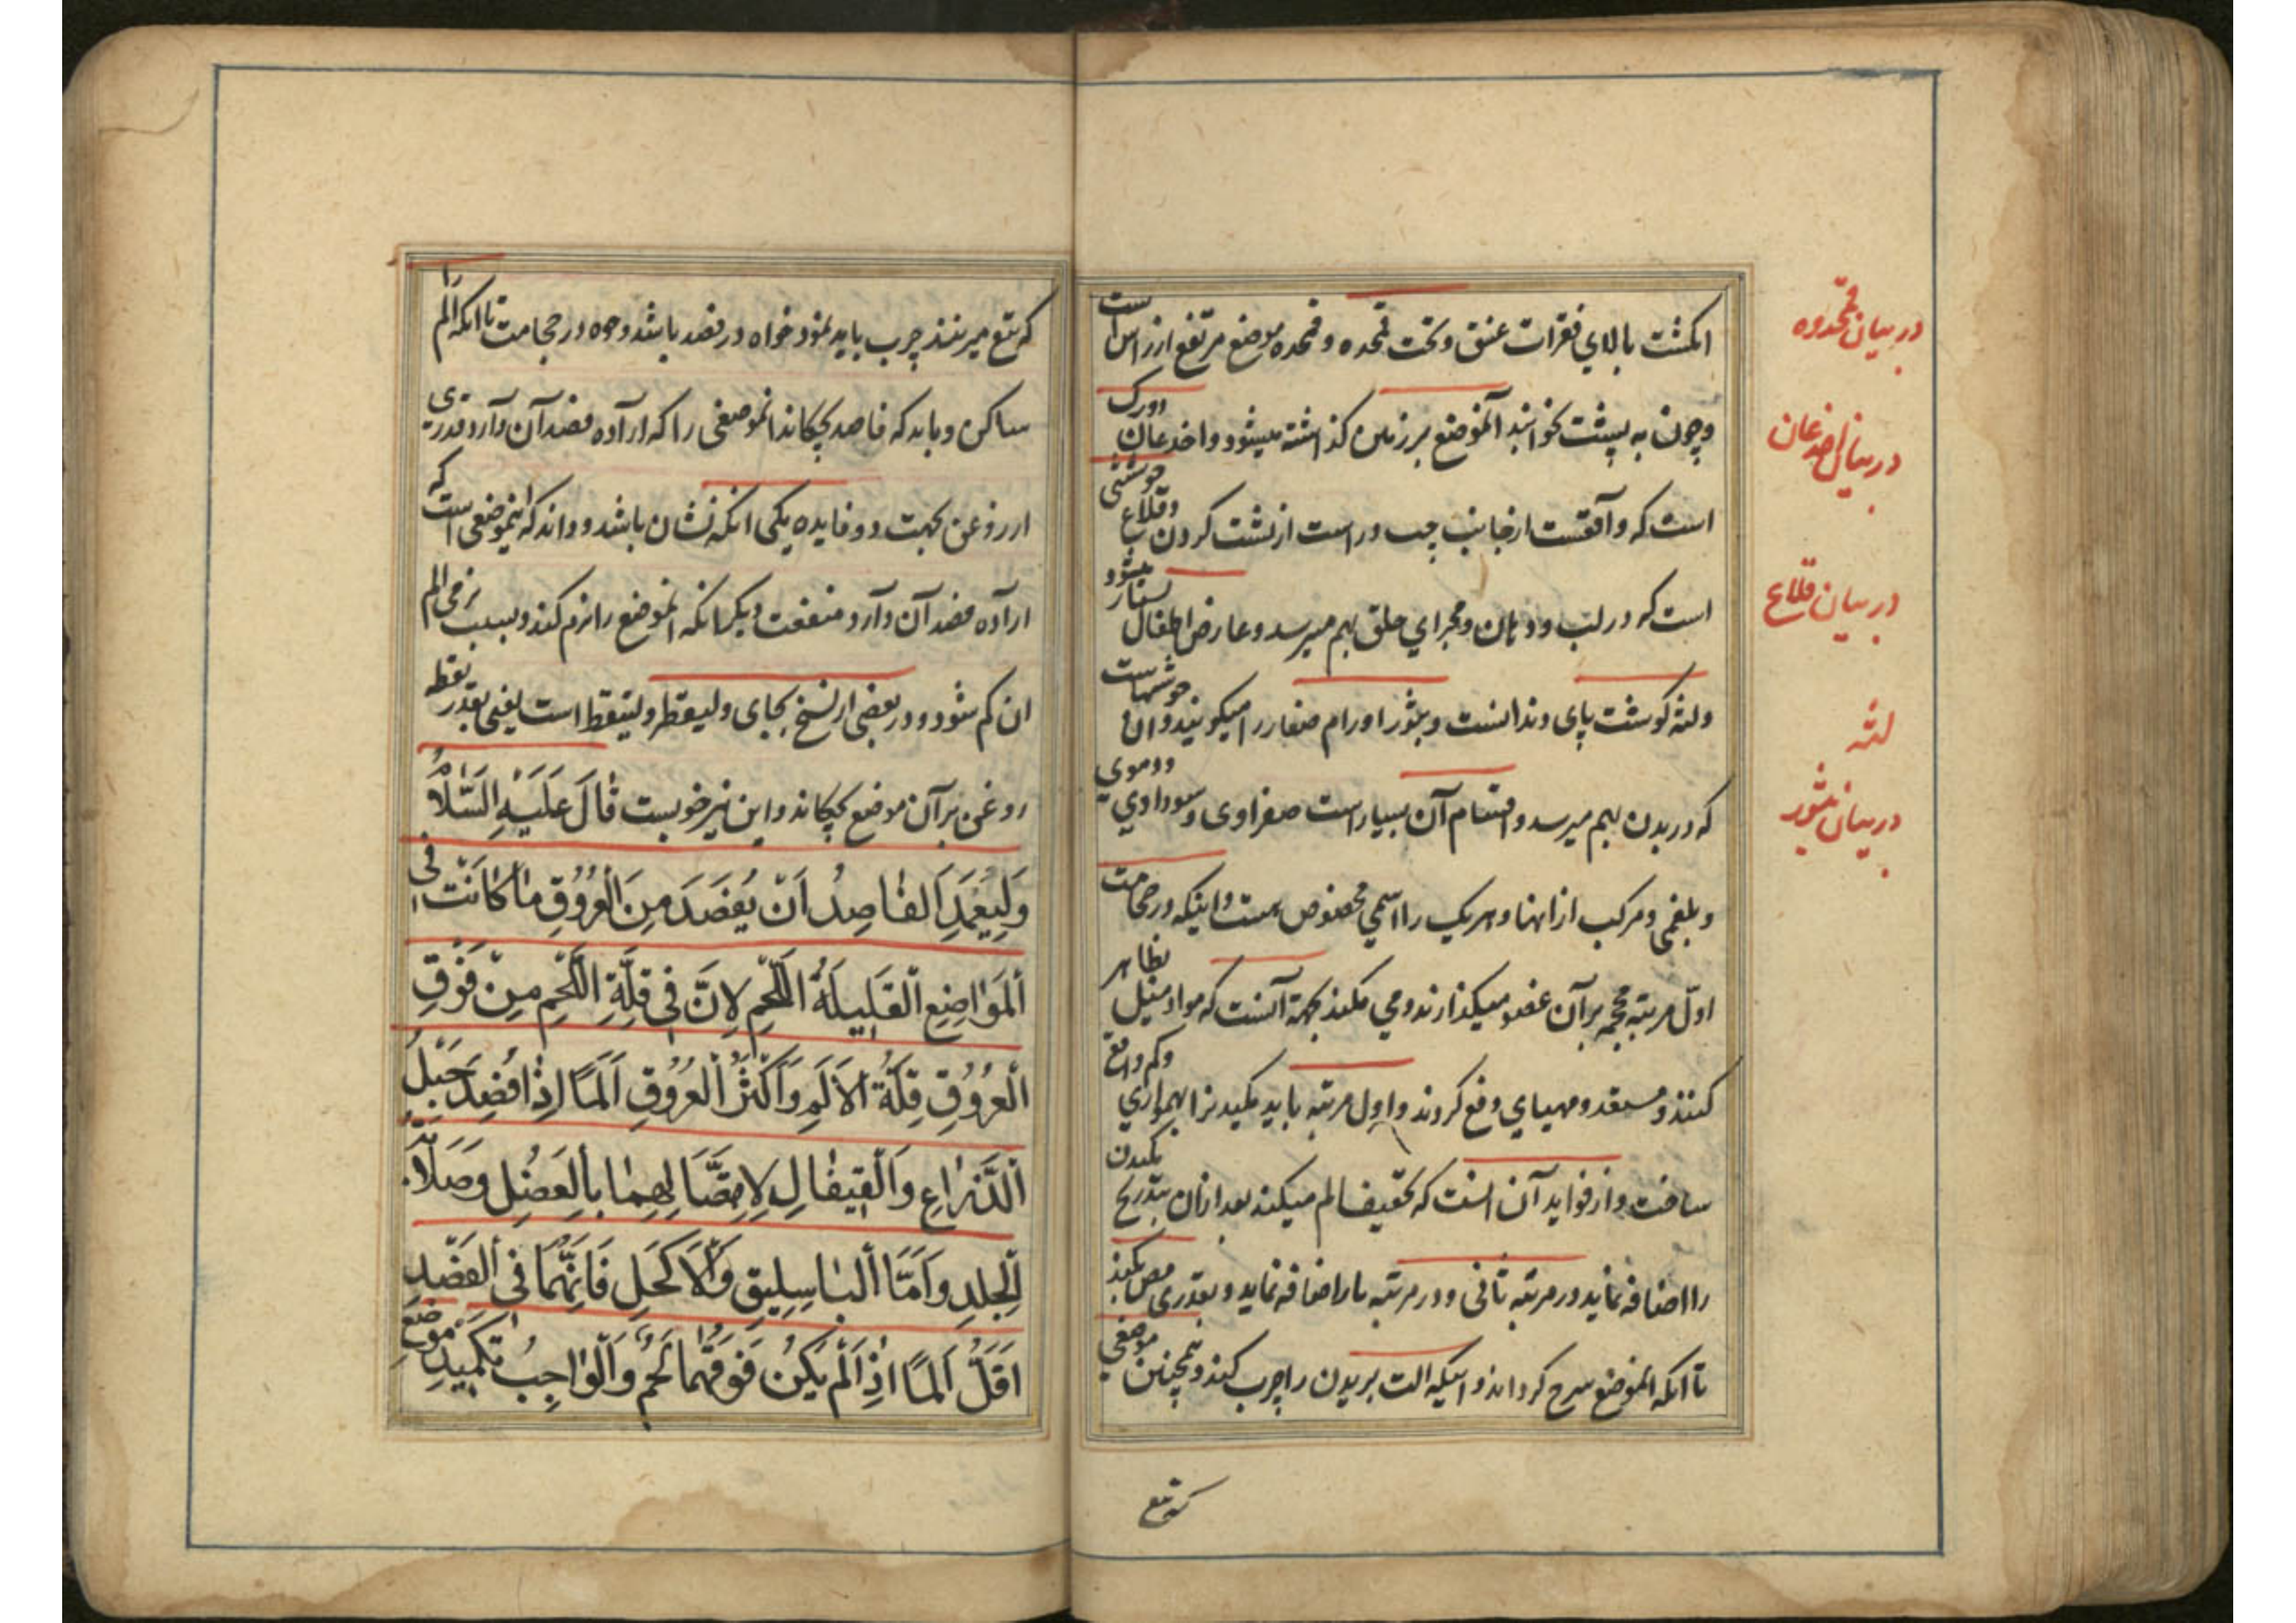 انکشت بالای فقرات عنق و تحت قمحده و قمحده موضع مرتفع از راس است
و چون به پشت بخوابند آنموضع بر زمین گذاشته میشود و اخدعان دورک
است که واقعست از جانب چپ و راست از پشت کردن و قلاع جوششی
است که در لب و دهان و مجرای حلق بهم میرسد و عارض اطفال بسیار میشود
ولثه کوشت پای دندانست و بثور اورام صغار را میکویند و ان جوششهاست
که در بدن بهم میرسد و اقسام آن بسیار است صفراوی و سوداوی و دموی
و بلغمی و مرکب از اینها و هر یک را اسمی مخصوص هست و اینکه در حجامت
اول مرتبه محجمه بر آن عضو میکذارند و می مکند بجهة آنست که مواد میل بظاهر
کنند و مستعد و مهیای دفع کردند و اول مرتبه باید مکید نرا بهمواری و کم واقع
ساخت و از فواید آن انست که تخفیف الم میکند بعد از ان بتدریج مکیدن
را اضافه نماید در مرتبه ثانی و در مرتبه ها را اضافه نماید و بقدری مص بکند
تا انکه انموضع سرخ کرداند و اینکه الت بریدن را چرب کند و همچنین موضعی
که بتیغ
در بیان قمحدوه
در بیان اخدعان
در بیان قلاع
لثه
در بیان بثور
که بتیغ میزنند چرب باید نمود خواه در فصد باشد و خواه در حجامت تا انکه الم را
ساکن و باید که فاصد بچکاند انموضعی را که اراده فصد آن دارد قدری
از روغن بجهت دو فایده یکی انکه نشان باشد و داند که اینموضعی است که
اراده فصد آن دارد و منفعت دیکر انکه انموضع را نرم کند و بسبب نرمی الم
ان کم شود و در بعضی از نسخ بجای و لیقطر و لینقط است یعنی بقدر نقطه
روغن بر آن موضع بچکاند و این نیز خوبست قَالَ عَلَیهِ السَّلَامُ
وَلِیَعْمِدِ الفَاصِدُ اَنْ یُفصَدَ مِنَ العُرُوقِ مَا کَانَتْ فی
اَلمَوَاضِعِ القَلِیلَةُ اللَّحمِ لِاَنَّ فی قِلَّةِ اللَّحمِ مِنْ فَوقِ
العُرُوقِ قِلَّةُ الاَلَمِ وَاَکثَرُ العُرُوقِ اَلَمًا اِذَا فُصِدَ حَبلُ
اَلذِّرَاعِ وَالقِیفَالِ لِاِتِّصَالِهِمَا بِالعَضَلِ وَصَلَابَةِ
اَلجِلدِ وَاَمَّا البَاسِلِیقِ وَالاَکحَلِ فَاِنَّهُمَا فی الفَصدِ
اَقَلُّ اَلَمًا اِذَا لَم یَکُن فَوقَهُمَا لَحمٌ وَالوَاجِبُ تَکمِیدُ مَوضِعِ